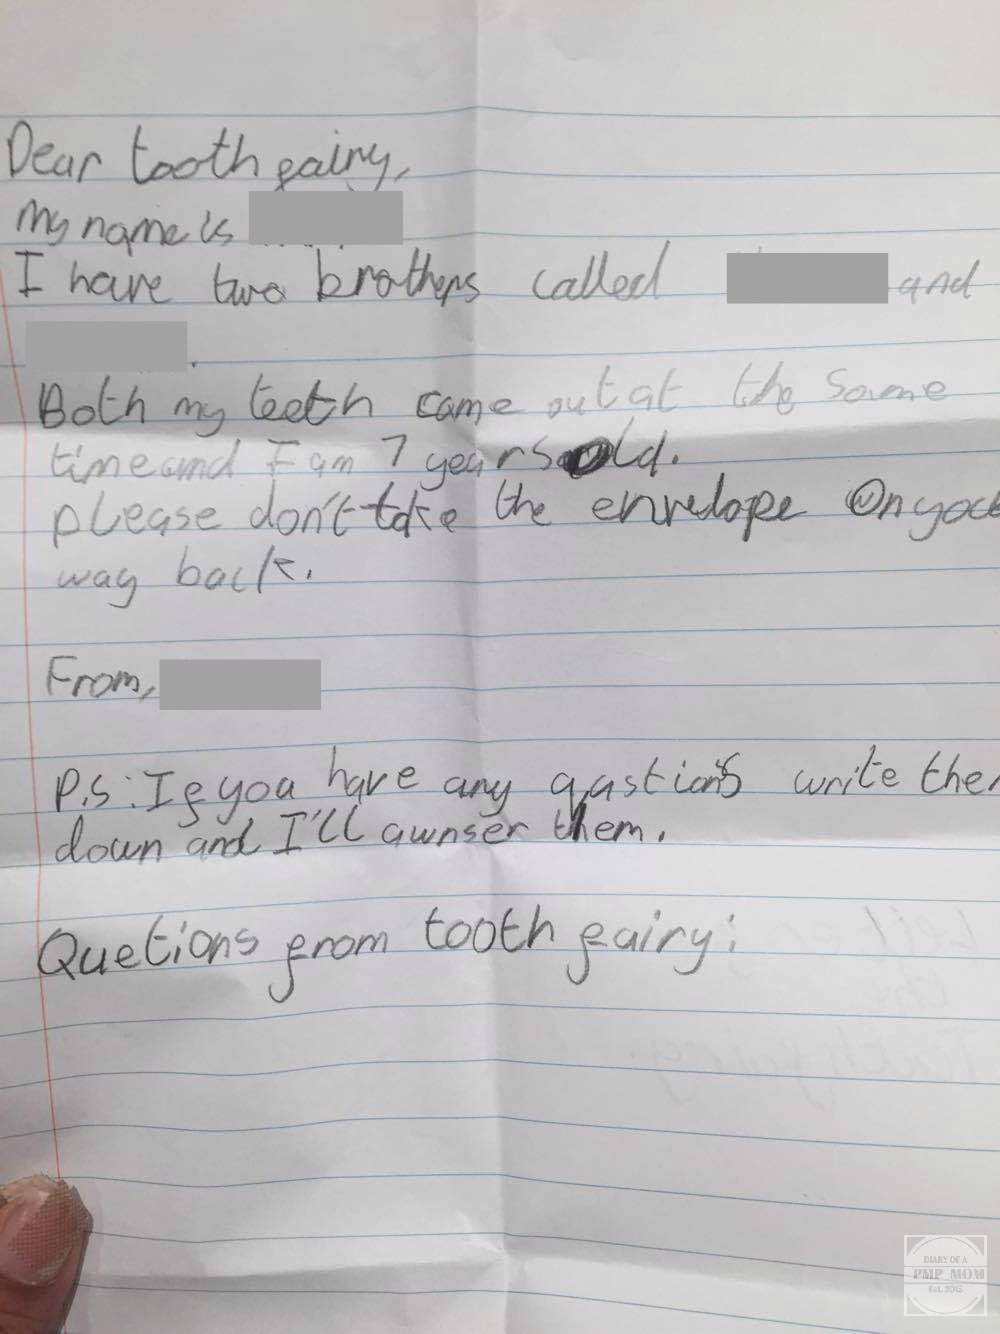 Dear tooth fairy,
my name is
I have two brothers called and
.
Both my teeth came out at the same
time and I am 7 years old.
please don't take the envelope On you
way back.
From,
P.S: If you have any qastions write them
down and I'll awnser them.
Quetions from tooth fairy:
DIARY OF A
PMP MOM
Est. 2015